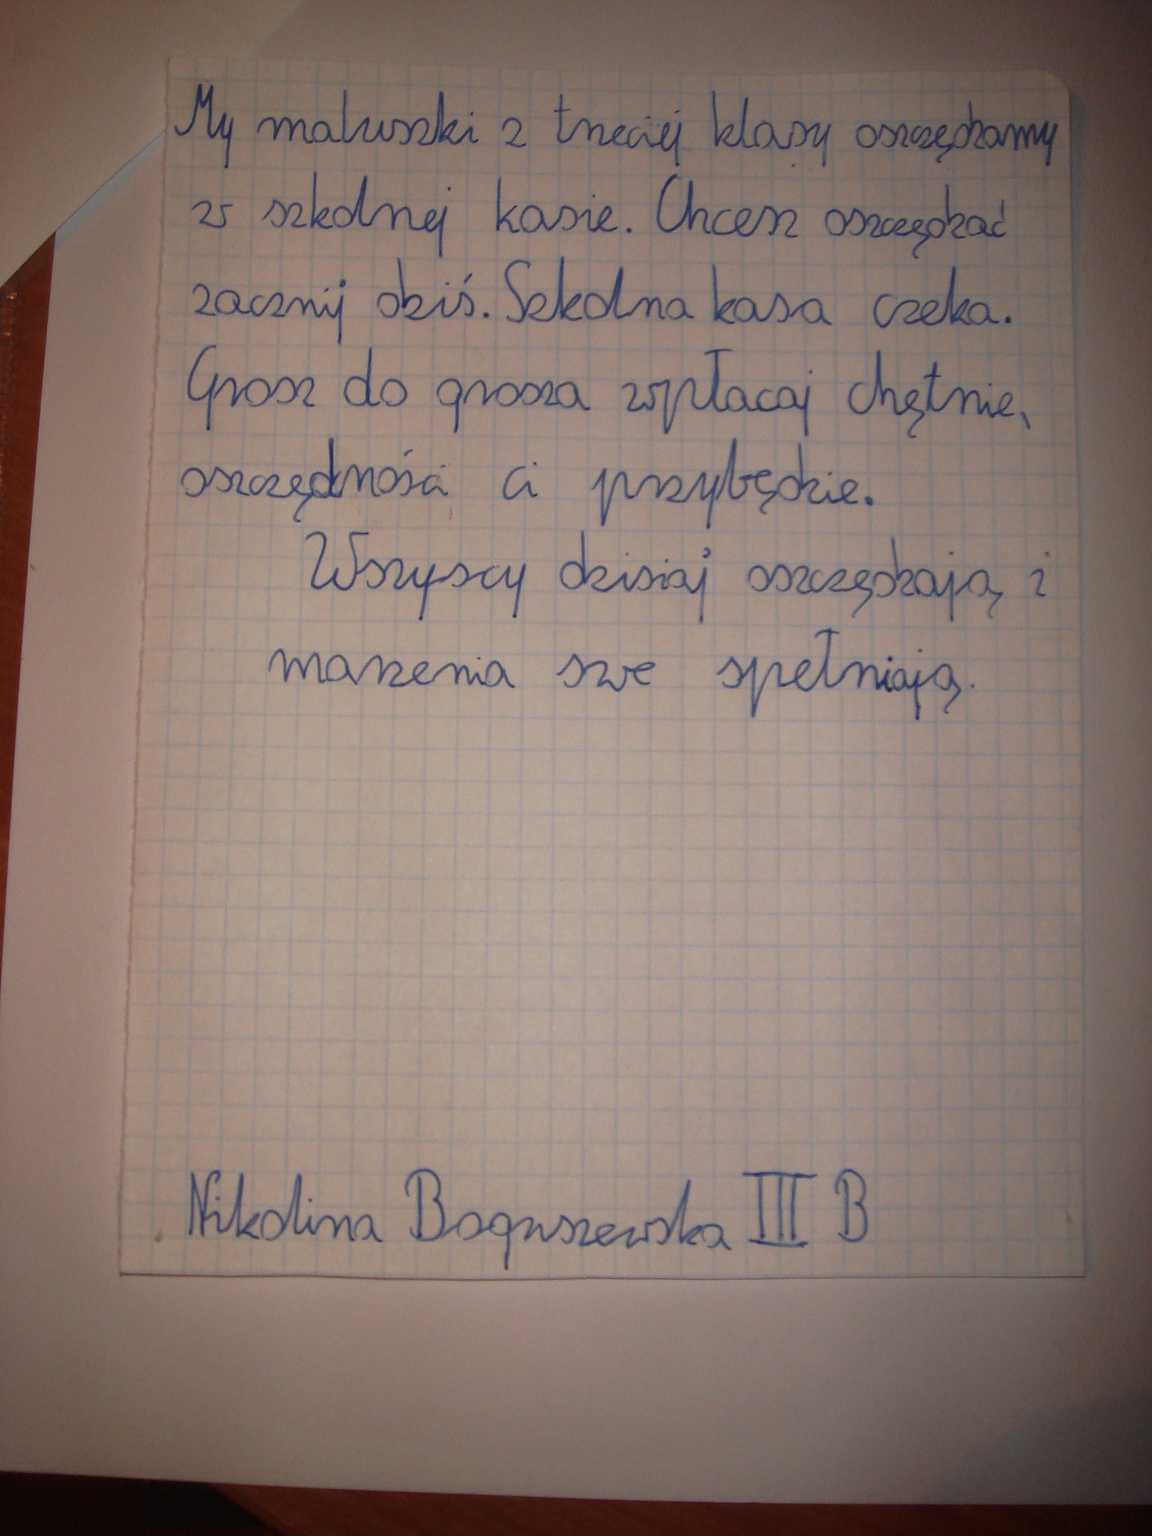 My maluszki z trzeciej klasy oszczędzamy
w szkolnej kasie. Chcesz oszczędzać
zacznij dziś. Szkolna kasa czeka.
Grosz do grosza wpłacaj chętnie,
oszczędności ci przybędzie.
Wszyscy dzisiaj oszczędzają i
marzenia swe spełniają.
Nikolina Boguszewska III B